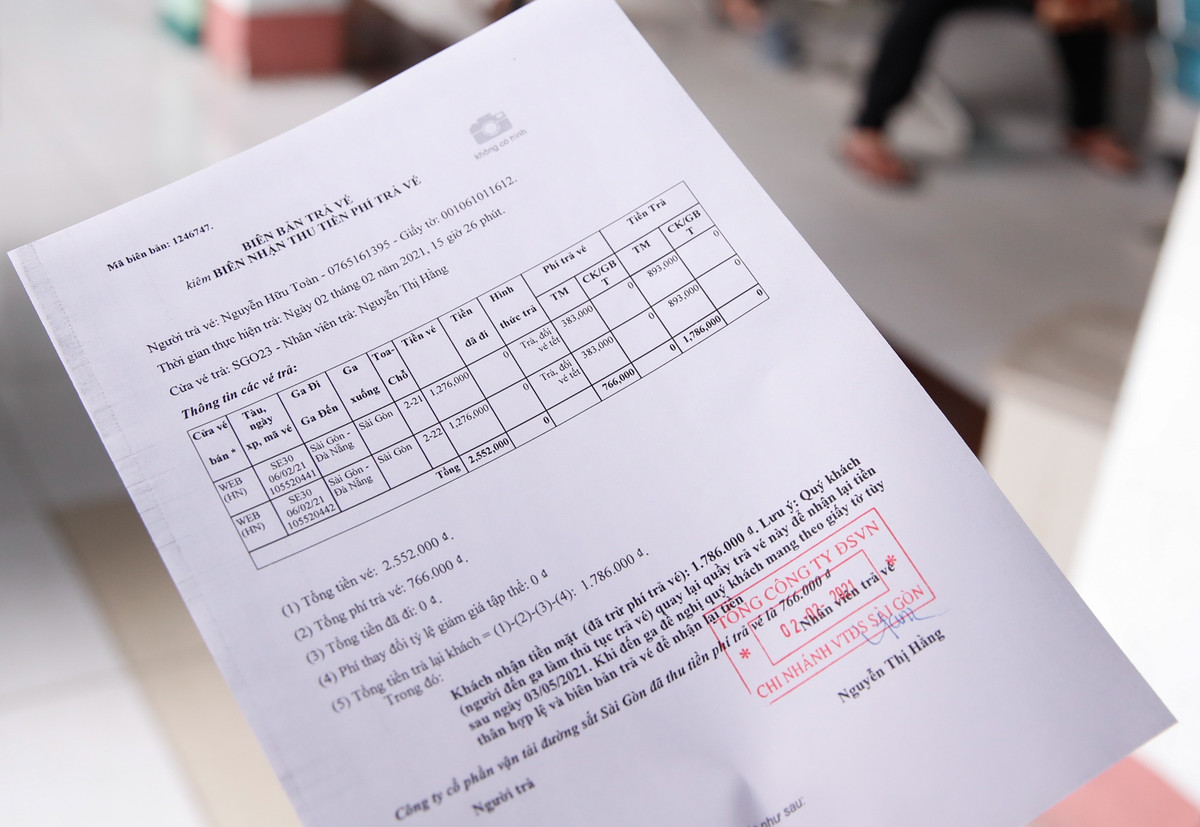 không có hình
Mã biên bản: 1246747.
BIÊN BẢN TRẢ VÉ
kiêm BIÊN NHẬN THU TIỀN PHÍ TRẢ VÉ
Người trả vé: Nguyễn Hữu Toàn - 0765161395 - Giấy tờ: 001061011612.
Thời gian thực hiện trả: Ngày 02 tháng 02 năm 2021, 15 giờ 26 phút.
Cửa vé trả: SGO23 - Nhân viên trả: Nguyễn Thị Hằng
Thông tin các vé trả:
Cửa vé bán * Tàu, ngày xp, mã vé Ga Đi Ga Đến Ga xuống Toa-Chỗ Tiền vé Tiền đã đi Hình thức trả Phí trả vé Tiền Trả
TM CK/GBT TM CK/GBT
WEB (HN) SE30 06/02/21 105520441 Sài Gòn - Đà Nẵng Sài Gòn 2-21 1,276,000 0 Trả, đổi vé tết 383,000 0 893,000 0
WEB (HN) SE30 06/02/21 105520442 Sài Gòn - Đà Nẵng Sài Gòn 2-22 1,276,000 0 Trả, đổi vé tết 383,000 0 893,000 0
Tổng 2,552,000 0 766,000 0 1,786,000 0
(1) Tổng tiền vé: 2.552.000 đ.
(2) Tổng phí trả vé: 766.000 đ.
(3) Tổng tiền đã đi: 0 đ.
(4) Phí thay đổi tỷ lệ giảm giá tập thể: 0 đ
(5) Tổng tiền trả lại khách = (1)-(2)-(3)-(4): 1.786.000 đ.
Trong đó:
Khách nhận tiền mặt (đã trừ phí trả vé): 1.786.000 đ. Lưu ý: Quý khách
(người đến ga làm thủ tục trả vé) quay lại quầy trả vé này để nhận lại tiền
sau ngày 03/05/2021. Khi đến ga đề nghị quý khách mang theo giấy tờ tùy
thân hợp lệ và biên bản trả vé để nhận lại tiền
Công ty cổ phần vận tải đường sắt Sài Gòn đã thu tiền phí trả vé là 766.000 đ
Người trả
Nhân viên trả vé
TỔNG CÔNG TY ĐSVN
02-02-2021
CHI NHÁNH VTĐS SÀI GÒN
Nguyễn Thị Hằng
như sau: